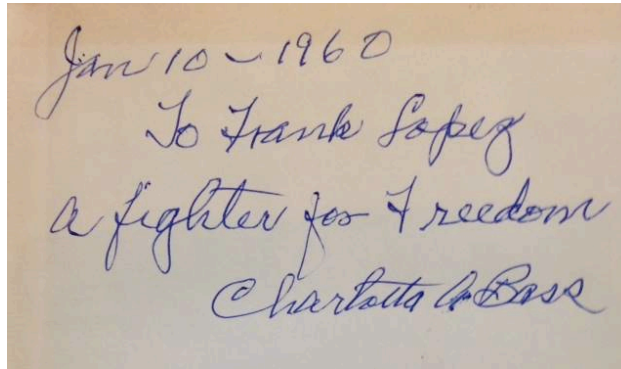 Jan 10 - 1960
To Frank Lopez
a fighter for Freedom
Charlotta A Bass